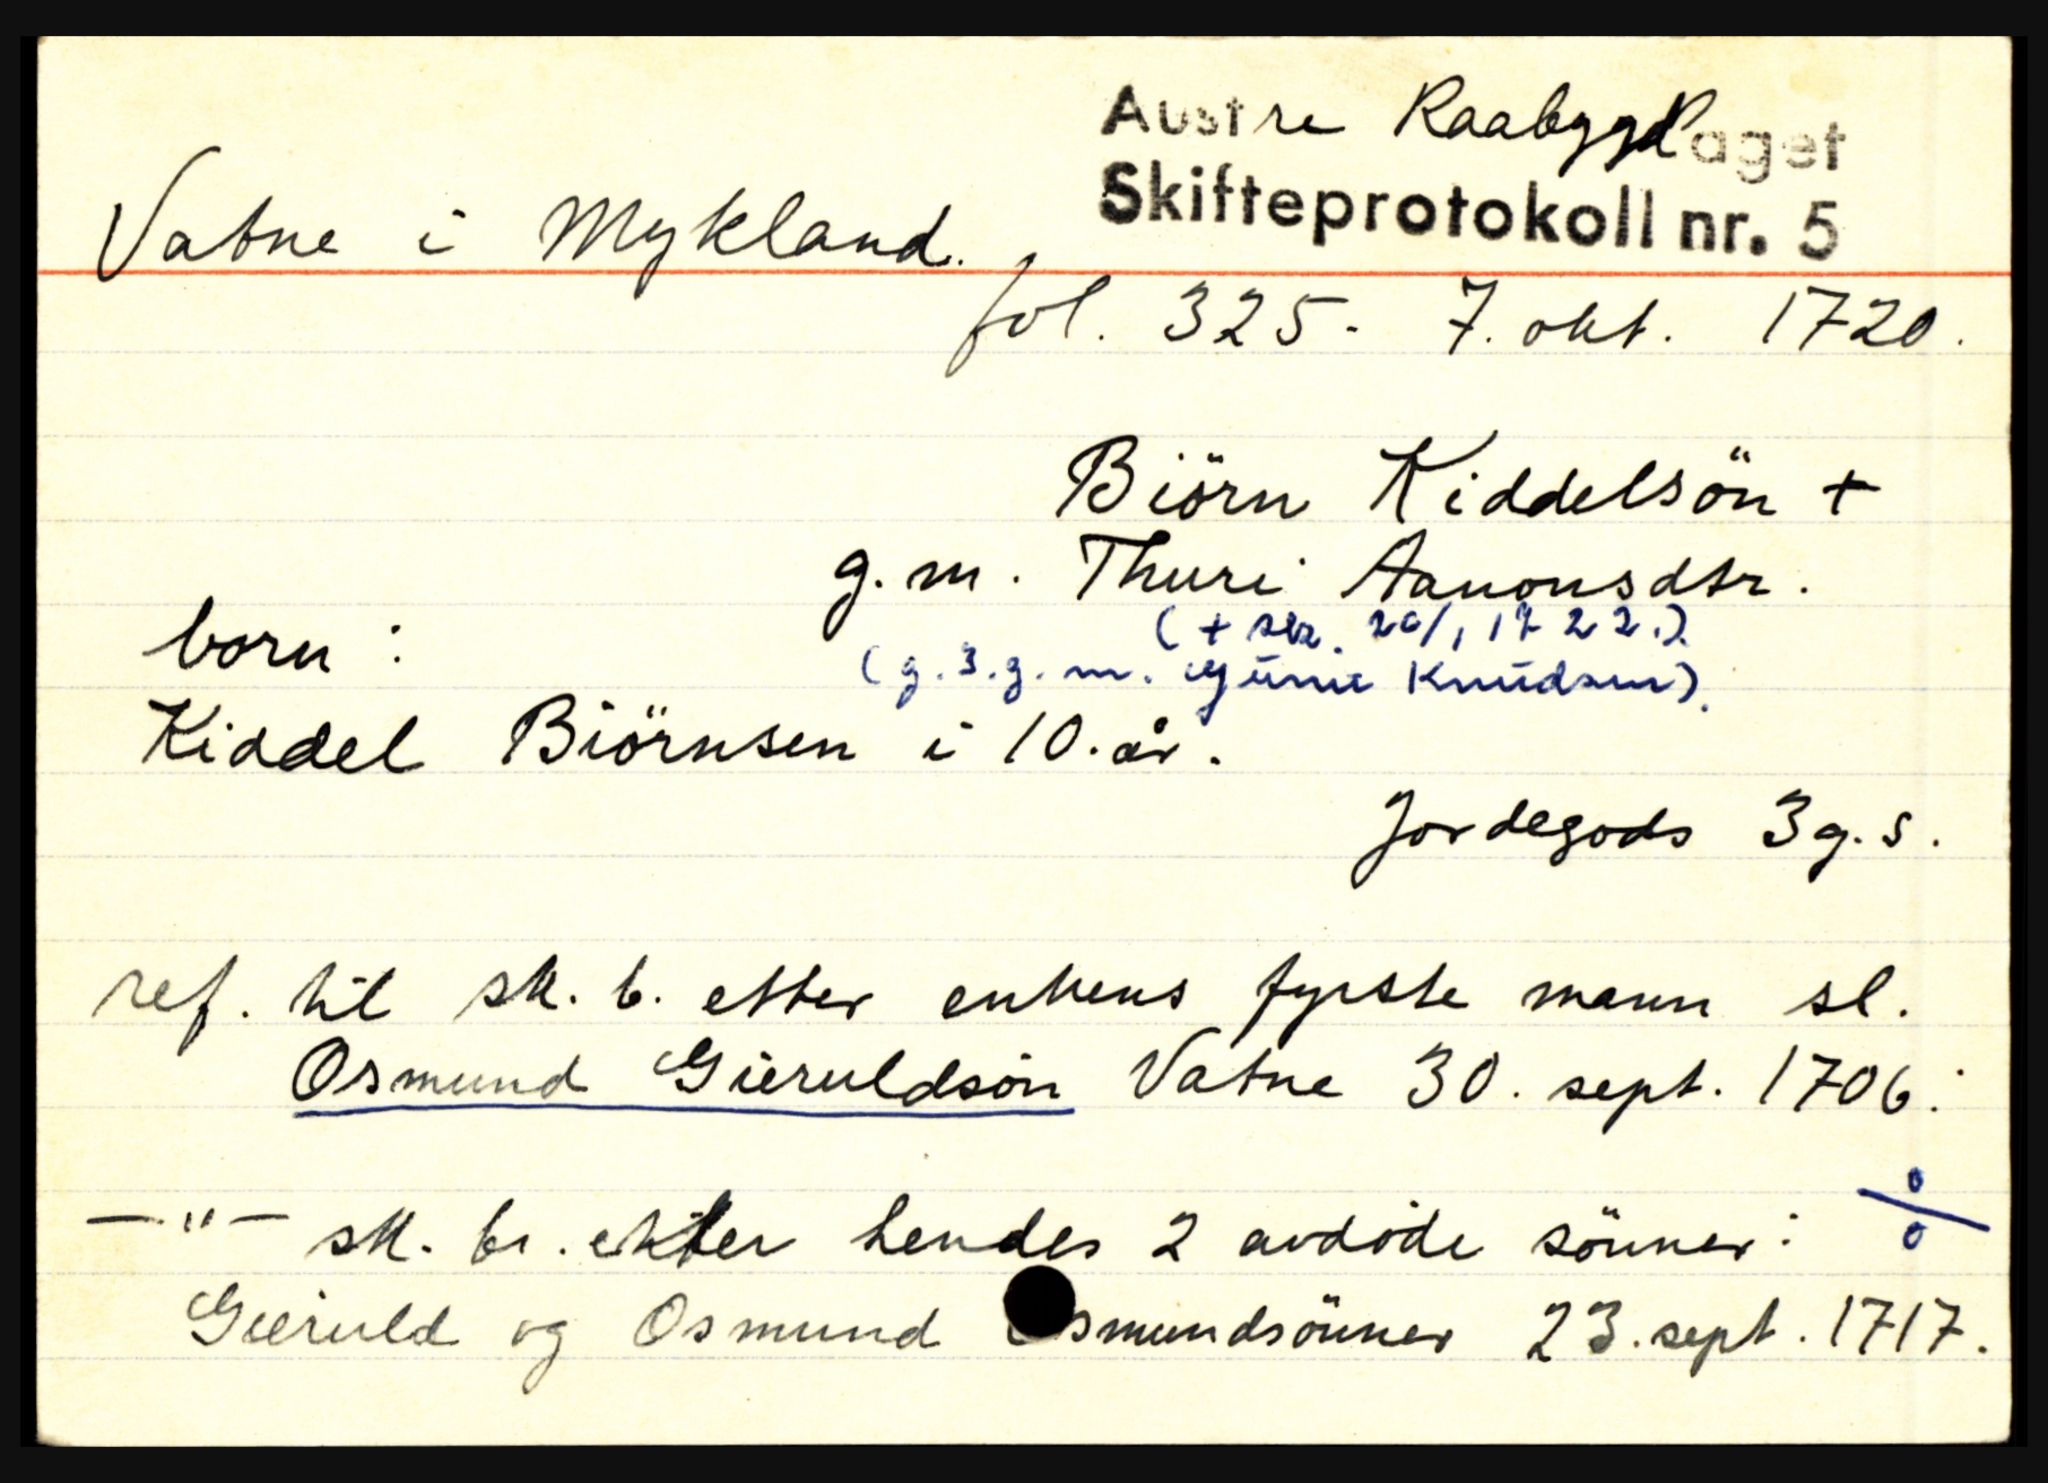 Austre Raabyggdlaget
Skifteprotokoll nr. 5
Vatne i Mykland.
fol. 325. 7. okt. 1720.
Biörn Kiddelsön +
g. m. Thuri Aanonsdtr.
(+ 20/1 1722.)
born:
(g. 3. g. m. Knudsen).
Kiddel Biörnsen i 10. år.
Jordegods 3 g. s.
ref. til sk. b. etter enkens fyrste mann sl.
Osmund Gieruldsön Vatne 30. sept. 1706.
— " — sk. br. etter hendes 2 avdöde sönner:
Gieruld og Osmund Osmundsönner 23. sept. 1717.